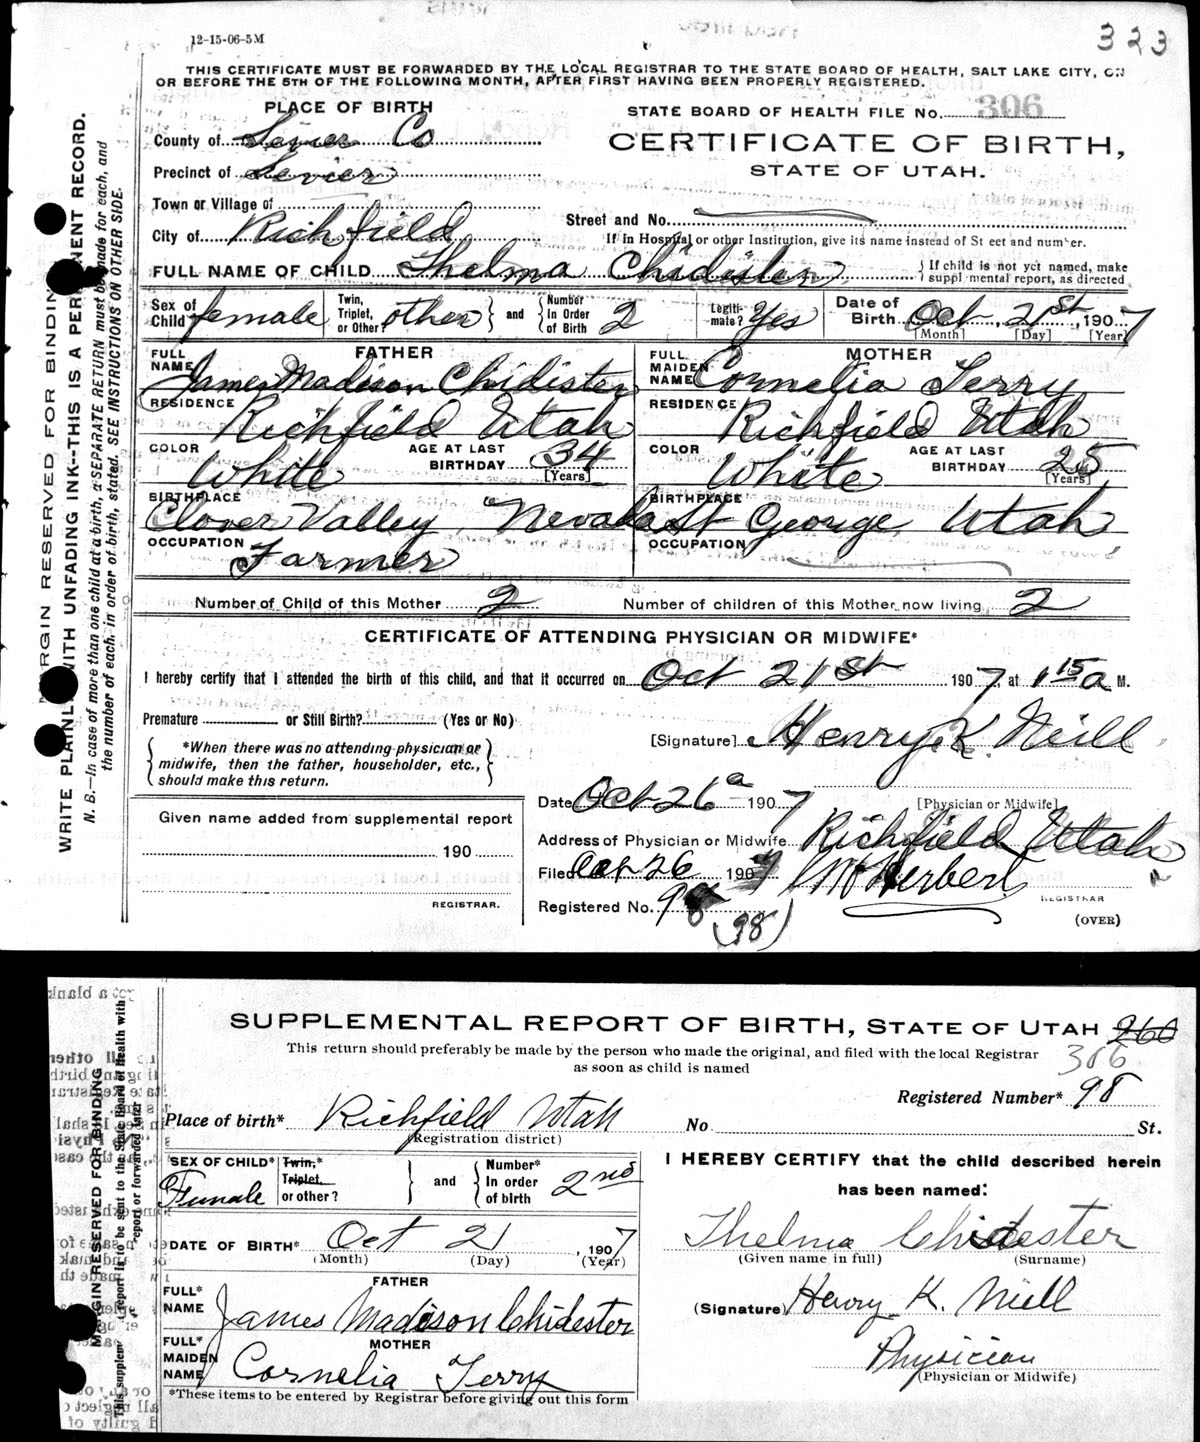 12-15-06-5M
323
THIS CERTIFICATE MUST BE FORWARDED BY THE LOCAL REGISTRAR TO THE STATE BOARD OF HEALTH, SALT LAKE CITY, ON
OR BEFORE THE 5TH OF THE FOLLOWING MONTH, AFTER FIRST HAVING BEEN PROPERLY REGISTERED.
PLACE OF BIRTH
STATE BOARD OF HEALTH FILE No. 306
County of Sevier Co
CERTIFICATE OF BIRTH,
STATE OF UTAH.
Precinct of Sevier
Town or Village of
Street and No.
City of Richfield
If in Hospital or other Institution, give its name instead of St eet and number.
FULL NAME OF CHILD Thelma Chidister
{If child is not yet named, make suppl mental report, as directed
Sex of Child female
Twin, Triplet, or Other? other } and { Number In Order of Birth 2
Legitimate? Yes
Date of Birth Oct 21st, 1907
[Month] [Day] [Year]
FATHER
FULL NAME James Madison Chidister
RESIDENCE Richfield Utah
COLOR White
AGE AT LAST BIRTHDAY 34
[Years]
BIRTHPLACE Clover Valley Nevada
OCCUPATION Farmer
MOTHER
FULL MAIDEN NAME Cornelia Terry
RESIDENCE Richfield Utah
COLOR White
AGE AT LAST BIRTHDAY 25
[Years]
BIRTHPLACE St George Utah
OCCUPATION
Number of Child of this Mother 2
Number of children of this Mother now living 2
CERTIFICATE OF ATTENDING PHYSICIAN OR MIDWIFE*
I hereby certify that I attended the birth of this child, and that it occurred on Oct 21st 1907, at 1 15 a M.
Premature or Still Birth? (Yes or No)
[Signature] Henry K. Neill
*When there was no attending physician or
midwife, then the father, householder, etc.,
should make this return.
[Physician or Midwife]
Date Oct 26 a 1907
Given name added from supplemental report
190
REGISTRAR.
Address of Physician or Midwife Richfield Utah
Filed Oct 26 1907 Herbert
REGISTRAR
Registered No. 98 (98)
(OVER)
MARGIN RESERVED FOR BINDING
WRITE PLAINLY WITH UNFADING INK--THIS IS A PERMANENT RECORD.
N. B.--In case of more than one child at a birth, a SEPARATE RETURN must be made for each, and
the number of each, in order of birth, stated. SEE INSTRUCTIONS ON OTHER SIDE.
SUPPLEMENTAL REPORT OF BIRTH, STATE OF UTAH 260
306
This return should preferably be made by the person who made the original, and filed with the local Registrar
as soon as child is named
Registered Number* 98
Place of birth* Richfield Utah
(Registration district)
No St.
SEX OF CHILD* Female
Twin,* Triplet, or other? } and { Number* In order of birth 2nd
DATE OF BIRTH* Oct 21, 1907
(Month) (Day) (Year)
FATHER
FULL* NAME James Madison Chidester
MOTHER
FULL* MAIDEN NAME Cornelia Terry
*These items to be entered by Registrar before giving out this form
I HEREBY CERTIFY that the child described herein
has been named:
Thelma Chidester
(Given name in full) (Surname)
(Signature) Henry K. Neill
Physician
(Physician or Midwife)
MARGIN RESERVED FOR BINDING